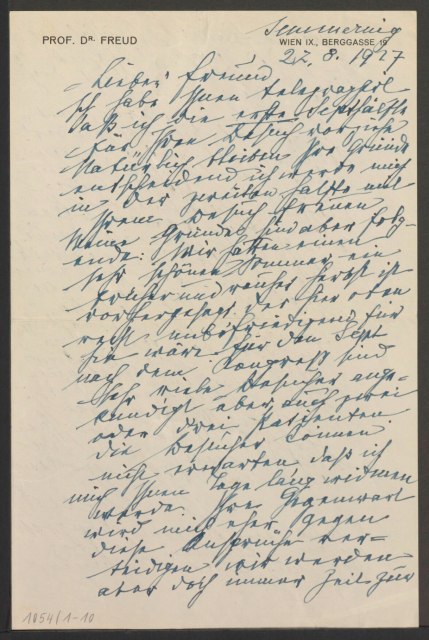 PROF. DR. FREUD
Semmering
WIEN IX., BERGGASSE 19
22. 8. 1927
Lieber Freund
Ich habe Ihnen telegraphirt
daß ich die erste Septhälfte
für Ihren Besuch vorziehe
Natürlich bleiben Ihre Gründe
entscheidend ich werde mich
in der zweiten Hälfte mit
Ihrem Besuch freuen
Meine Gründe sind aber folg-
ende: Wir hatten einen
sehr schönen Sommer, ein
früher und rauher Herbst ist
vorhergesagt. Der hier oben
recht unbefriedigend für
Sie wäre. Für den Sept
nach dem Congreß sind
sehr viele Besucher ange-
kündigt aber auch zwei
oder drei Patienten
die Besucher können
nicht erwarten, daß ich
mich Ihnen Tage lang widmen
werde. Ihre Gegenwart
wird mich eher gegen
diese Ansprüche ver-
teidigen wir werden
aber doch immer Zeit zur
1054/1-10